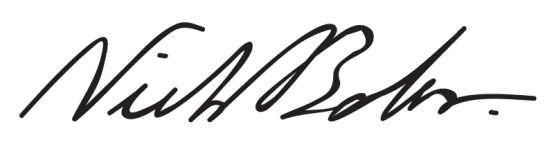 Niels Bohr